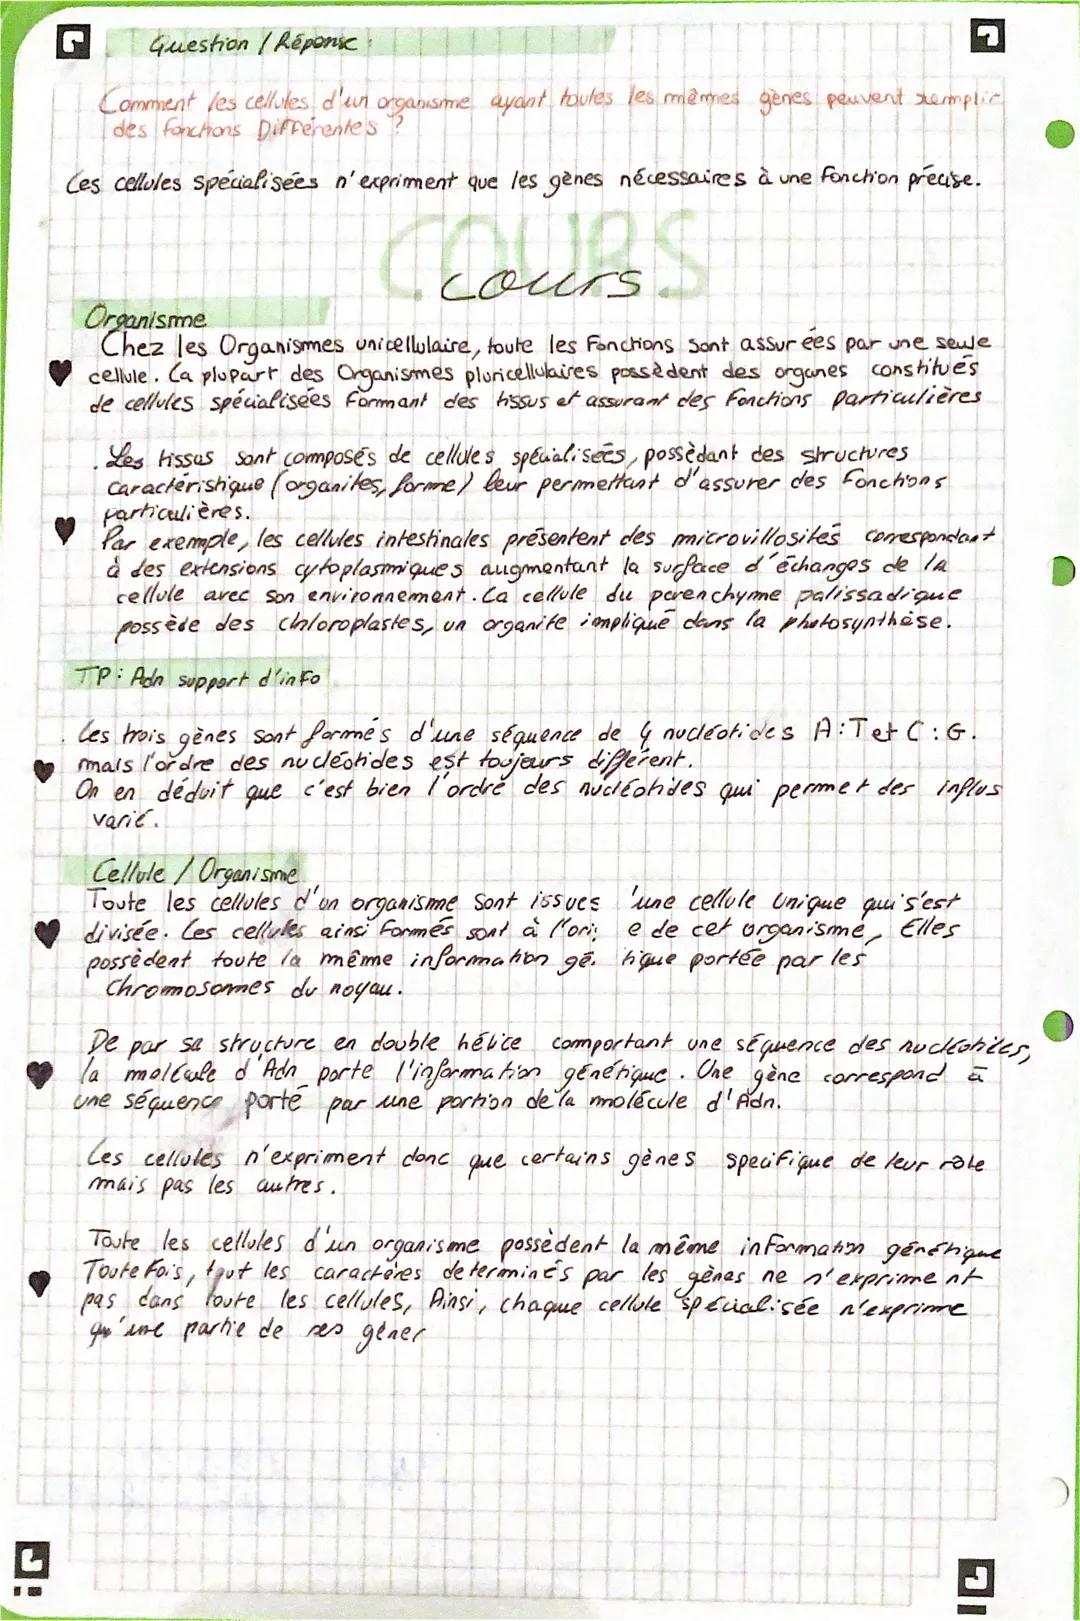 Question / Réponse :
Comment les cellules d'un organisme ayant toutes les mêmes gènes peuvent remplir
des fonctions Différentes ?
Les cellules spécialisées n'expriment que les gènes nécessaires à une fonction précise.
COURS
cours
Organisme
Chez les Organismes unicellulaire, toute les fonctions sont assurées par une seule
cellule. La plupart des Organismes pluricellulaires possèdent des organes constitués
de cellules spécialisées formant des tissus et assurant des fonctions particulières
. Les tissus sont composés de cellules spécialisées, possèdant des structures
caractéristique (organites, forme) leur permettant d'assurer des fonctions
particulières.
Par exemple, les cellules intestinales présentent des microvillosités correspondant
à des extensions cytoplasmiques augmentant la surface d'échanges de la
cellule avec son environnement. La cellule du parenchyme palissadique
possède des chloroplastes, un organite impliqué dans la photosynthèse.
TP : Adn support d'info
. Les trois gènes sont formés d'une séquence de 4 nucléotides A:T et C:G.
mais l'ordre des nucléotides est toujours différent.
On en déduit que c'est bien l'ordre des nucléotides qui permet des influs
varié.
Cellule / Organisme
Toute les cellules d'un organisme sont issues 'une cellule unique qui s'est
divisée. Les cellules ainsi formés sont à l'ori e de cet organisme, Elles
possèdent toute la même information gé tique portée par les
Chromosomes du noyau.
De par sa structure en double hélice comportant une séquence des nucléotides,
la molécule d'Adn porte l'information génétique. Une gène correspond à
une séquence porté par une portion de la molécule d'Adn.
Les cellules n'expriment donc que certains gènes spécifique de leur rôle
mais pas les autres.
Toute les cellules d'un organisme possèdent la même information génétique
Toutefois, tout les caractères determinés par les gènes ne s'expriment
pas dans toute les cellules, Ainsi, chaque cellule spécialisée n'exprime
qu'une partie de ses gèner